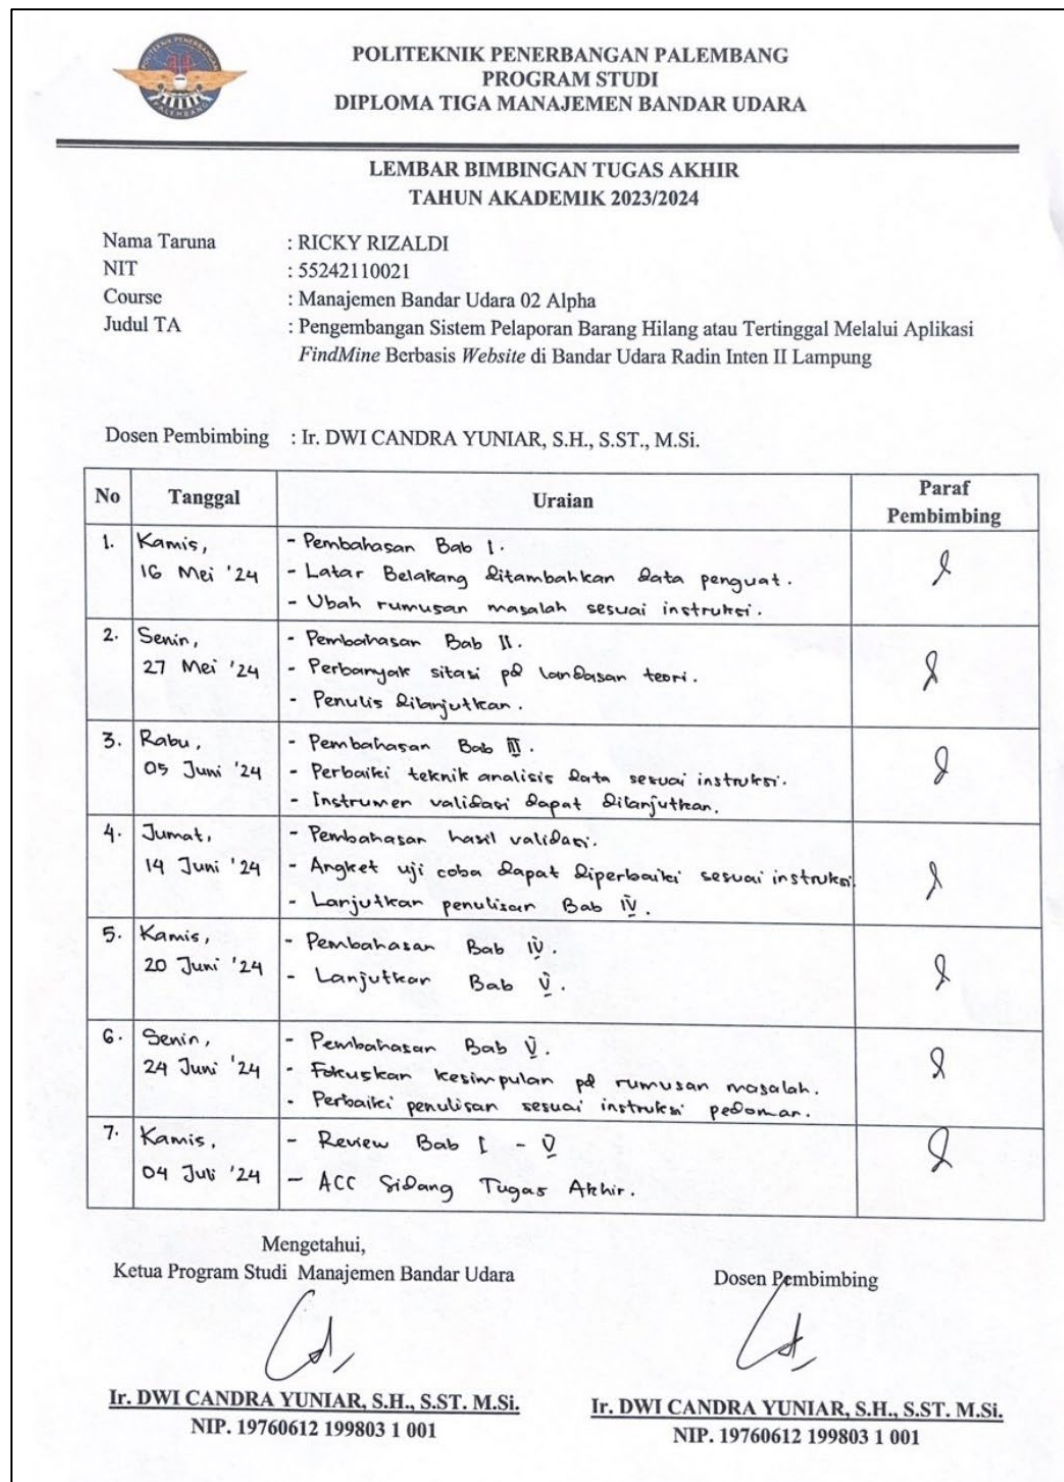 POLITEKNIK PENERBANGAN PALEMBANG
PROGRAM STUDI
DIPLOMA TIGA MANAJEMEN BANDAR UDARA
LEMBAR BIMBINGAN TUGAS AKHIR
TAHUN AKADEMIK 2023/2024
Nama Taruna : RICKY RIZALDI
NIT : 55242110021
Course : Manajemen Bandar Udara 02 Alpha
Judul TA : Pengembangan Sistem Pelaporan Barang Hilang atau Tertinggal Melalui Aplikasi
FindMine Berbasis Website di Bandar Udara Radin Inten II Lampung
Dosen Pembimbing : Ir. DWI CANDRA YUNIAR, S.H., S.ST., M.Si.
No Tanggal Uraian Paraf
Pembimbing
1. Kamis, - Pembahasan Bab I.
16 Mei '24 - Latar Belakang ditambahkan data penguat.
- Ubah rumusan masalah sesuai instruksi.
2. Senin, - Pembahasan Bab II.
27 Mei '24 - Perbanyak sitasi pd landasan teori.
- Penulis dilanjutkan.
3. Rabu, - Pembahasan Bab III.
05 Juni '24 - Perbaiki teknik analisis data sesuai instruksi.
- Instrumen validasi dapat dilanjutkan.
4. Jumat, - Pembahasan hasil validasi.
14 Juni '24 - Angket uji coba dapat diperbaiki sesuai instruksi.
- Lanjutkan penulisan Bab IV.
5. Kamis, - Pembahasan Bab IV.
20 Juni '24 - Lanjutkan Bab V.
6. Senin, - Pembahasan Bab V.
24 Juni '24 - Fokuskan kesimpulan pd rumusan masalah.
- Perbaiki penulisan sesuai instruksi pedoman.
7. Kamis, - Review Bab I - V
04 Juli '24 - ACC Sidang Tugas Akhir.
Mengetahui,
Ketua Program Studi Manajemen Bandar Udara Dosen Pembimbing
Ir. DWI CANDRA YUNIAR, S.H., S.ST. M.Si. Ir. DWI CANDRA YUNIAR, S.H., S.ST. M.Si.
NIP. 19760612 199803 1 001 NIP. 19760612 199803 1 001